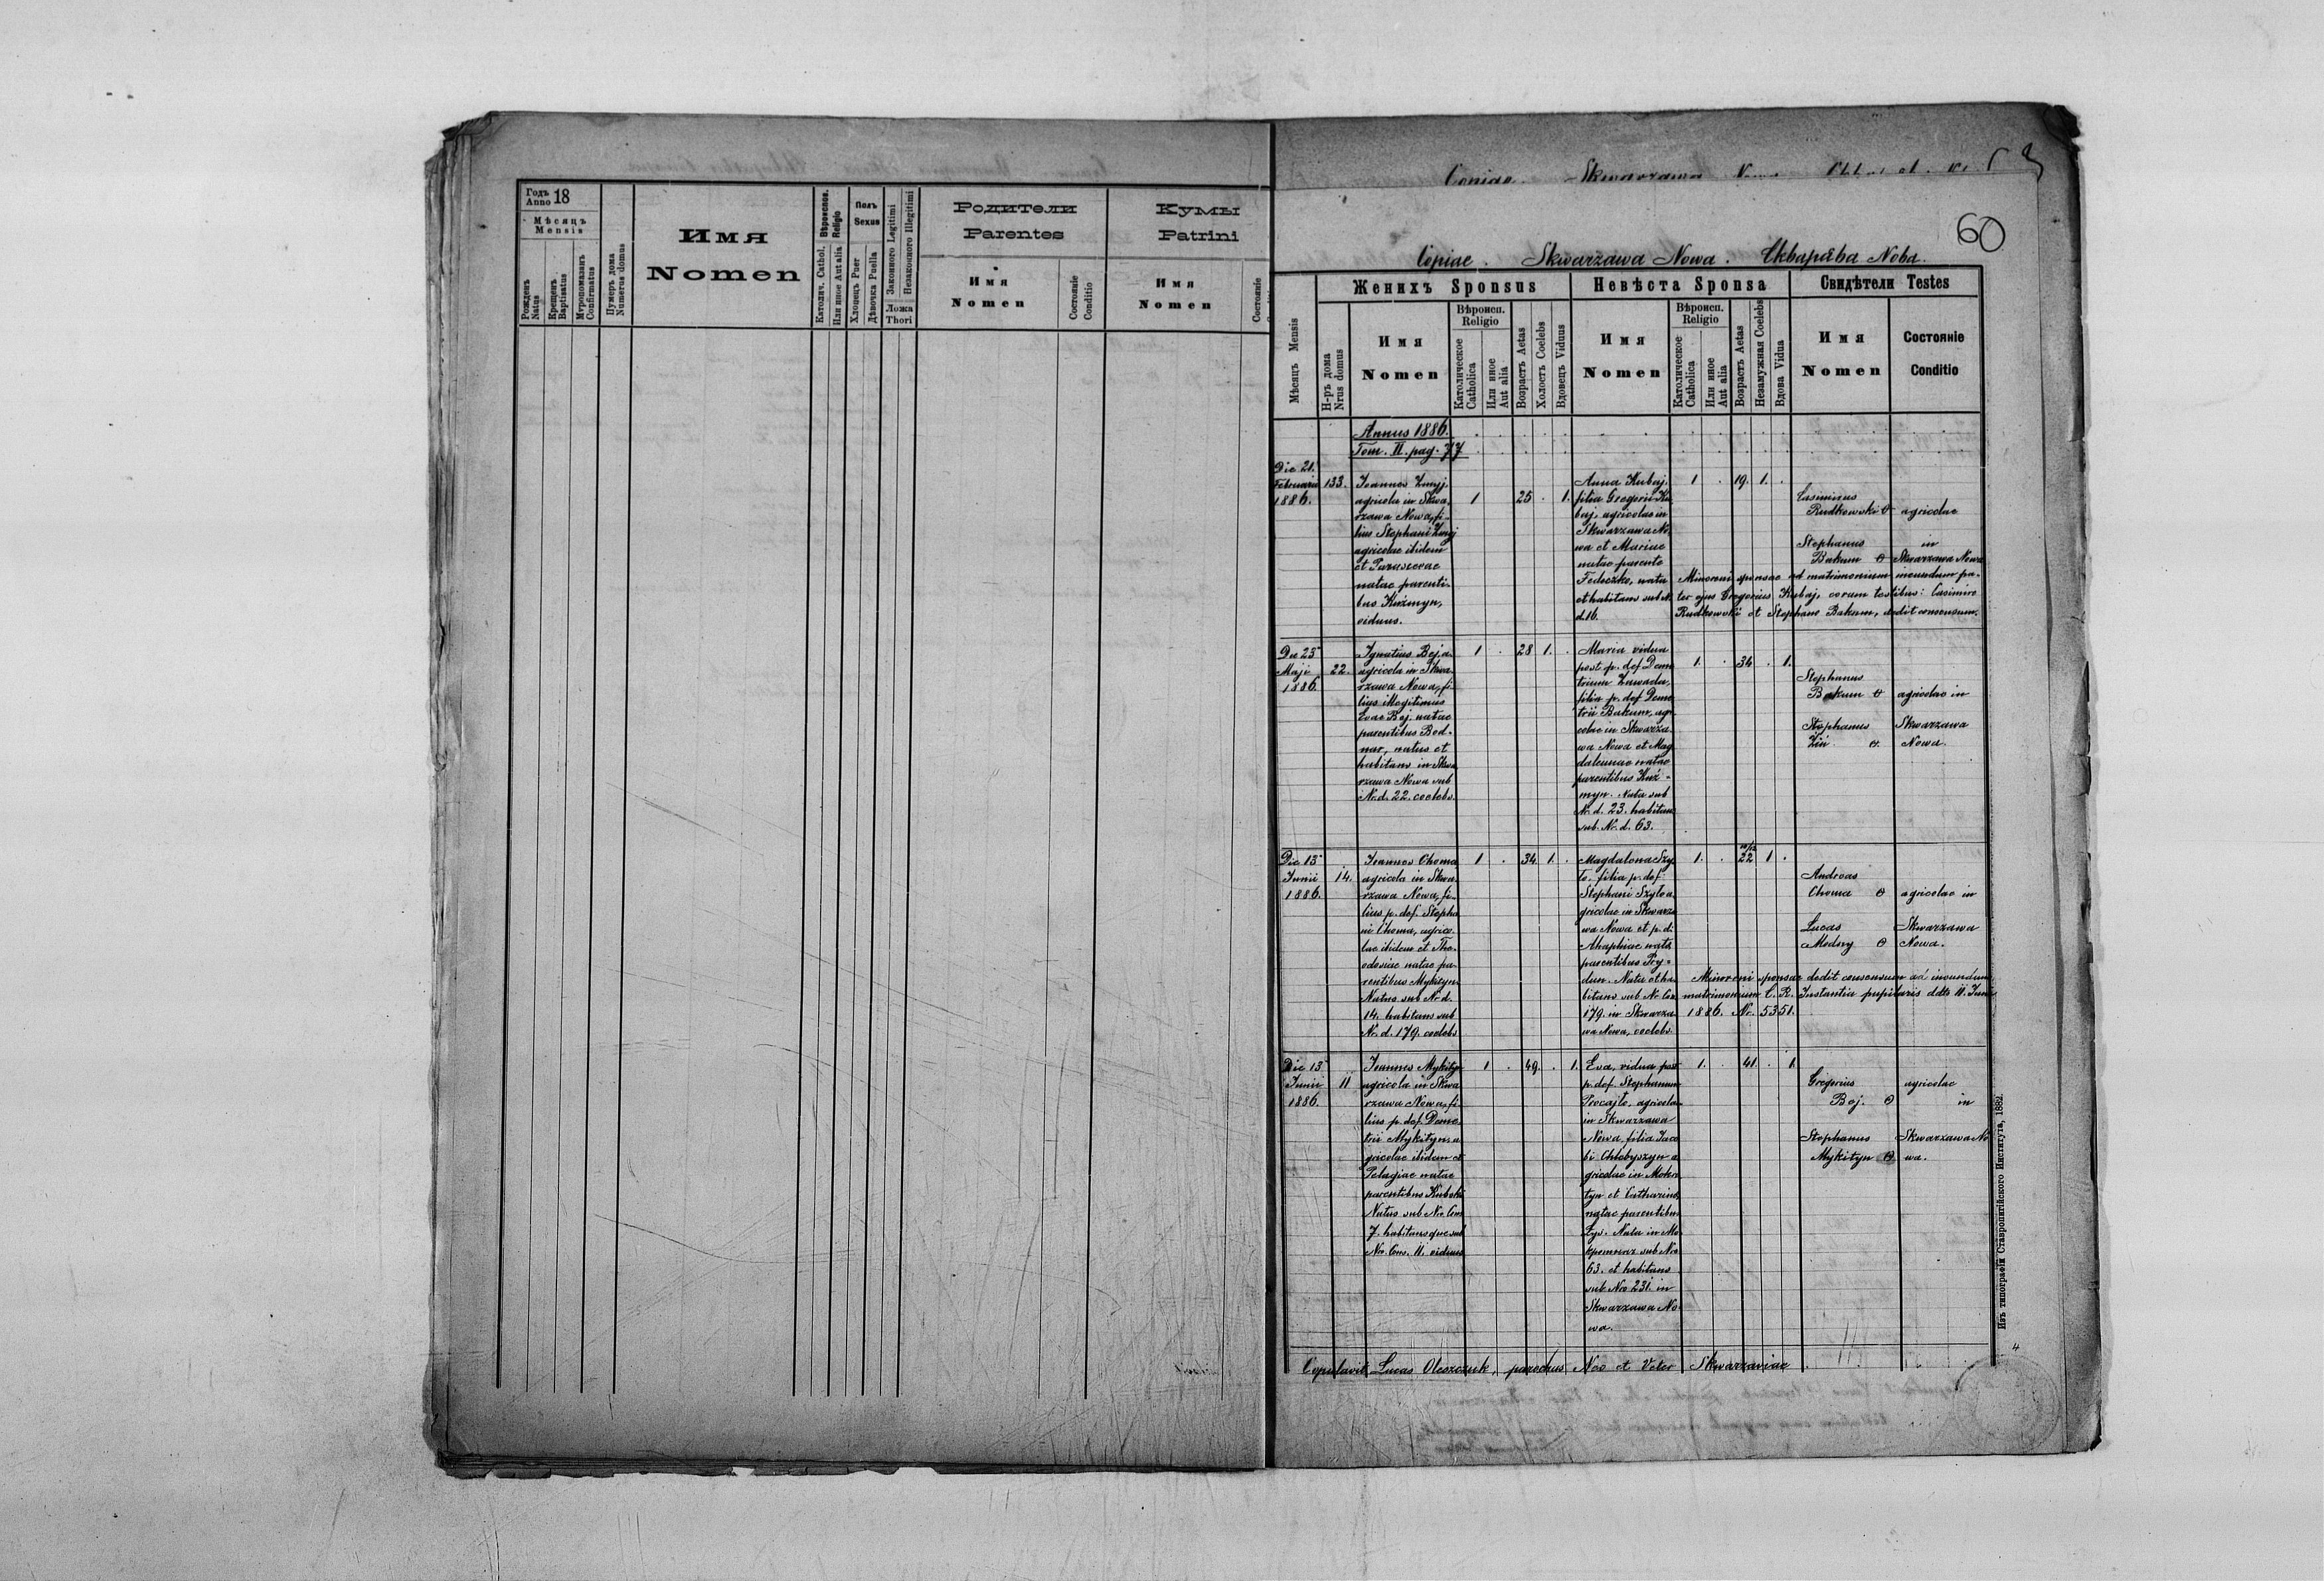 Годъ Anno 18
Мѣсяцъ
Mensis
Рожденъ Natus
Крещенъ Baptisatus
Мѵропомазанъ Confirmatus
Нумеръ дома Numerus domus
Имя
Nomen
Вѣроиспов. Religio
Католич. Cathol.
Или иное Aut alia
Полъ
Sexus
Хлопецъ Puer
Дѣвочка Puella
Законного Legitimi
Незаконного Illegitimi
Ложа
Thori
Родители
Parentes
Имя
Nomen
Состояніе Conditio
Кумы
Patrini
Имя
Nomen
Состояніе
Copiae Skwarzawa
60
Copiae. Skwarzawa Nowa.
Мѣсяцъ Mensis
Н-ръ дома Nrus domus
Женихъ Sponsus
Имя
Nomen
Вѣроисп.
Religio
Католическое Catholica
Или иное Aut alia
Возрастъ Aetas
Холостъ Coelebs
Вдовецъ Viduus
Невѣста Sponsa
Имя
Nomen
Вѣроисп.
Religio
Католическое Catholica
Или иное Aut alia
Возрастъ Aetas
Незамужная Coelebs
Вдова Vidua
Свидѣтели Testes
Имя
Nomen
Состояніе
Conditio
Annus 1886.
Tom. II. pag. 77
Die 21.
Februarii
1886.
133.
Joannes Zmyj,
agricola in Skwa-
rzawa Nowa, fi-
lius Stephani Zmyj
agricolae ibidem
et Parascevae
natae parenti-
bus Kuźmyn,
viduus.
1
25
1.
Anna Kubaj,
filia Gregorii Ku
baj, agricolae in
Skwarzawa No
wa et Mariae
natae parente
Fedeczko, nata
et habitans sub N.
d. 16.
1
19.
1.
Casimirus
Rudkowski agricolae
Stephanus in
Bakum Skwarzawa Nowa
Minoreni sponsae ad matrimonium ineundum pa-
ter ejus Gregorius Kubaj, coram testibus: Casimiro
Rudkowski et Stephano Bakum, dedit consensum.
Die 23
Maji
1886.
22.
Ignatius Boj, a-
agricola in Skwa
rzawa Nowa, fi
lius illegitimus
Evae Boj, natae
parentibus Bod-
nar, natus et
habitans in Skwa
rzawa Nowa sub
Nr. d. 22. coelebs.
1
28
1.
Maria vidua
post p. def Deme
trium Zawada,
filia p. def Deme
trii Bakum, agri
colae in Skwarza
wa Nowa et Mag
dalenae natae
parentibus Kuź-
myn. Nata sub
Nr. d. 23. habitans
sub. Nr. d. 63.
1.
34
1.
Stephanus
Bakum agricolae in
Stephanus Skwarzawa
Nowa.
Die 13
Junii
1886.
14.
Joannes Choma
agricola in Skwa
rzawa Nowa, fi-
lius p. def. Stepha
ni Choma, agrico
lae ibidem et The-
odosiae natae pa-
rentibus Mykityn
Natus sub Nr. d.
14. habitans sub
Nr. d. 179. coelebs
1
34.
1.
Magdalena Szy
ło, filia p. def
Stephani Szyło a
gricolae in Skwarza
wa Nowa et p. d.
Ahaphiae nata
parentibus Pry-
dun. Nata et ha-
bitans sub Nr. Con
179. in Skwarza
wa Nowa, coelebs.
1.
22
1
Andreas
Choma agricolae in
Lucas Skwarzawa
Medwy Nowa.
Minoreni sponsae dedit consensum ad ineundum
matrimonium C. R. Instantia pupilaris ddto 11. Junii
1886. Nr. 5351.
Die 13
Junii
1886.
11
Joannes Mykityn
agricola in Skwa
rzawa Nowa, fi
lius p. def. Deme
trii Mykityn, a
gricolae ibidem et
Pelagiae natae
parentibus
Natus sub Nro. Con
7. habitansque sub
Nro. Cons. 11. viduus
1
49.
1.
Eva, vidua post
p. def. Stephanum
Procajło, agricola
in Skwarzawa
Nowa, filia Jaco
bi Chlobyszyn a
gricolae in Mokro
tyn et Catharinae
natae parentibus
Łys. Nata in
sub Nro
63. et habitans
sub Nro 231 in
Skwarzawa No
wa.
1.
41.
1.
Gregorius agricolae
Boj. in
Stephanus Skwarzawa No
Mykityn wa.
Copulavit Lucas Oleszczuk, parochus Neo et Veter Skwarzaviae
Изъ типографіи Ставропигійского Института, 1882.
4